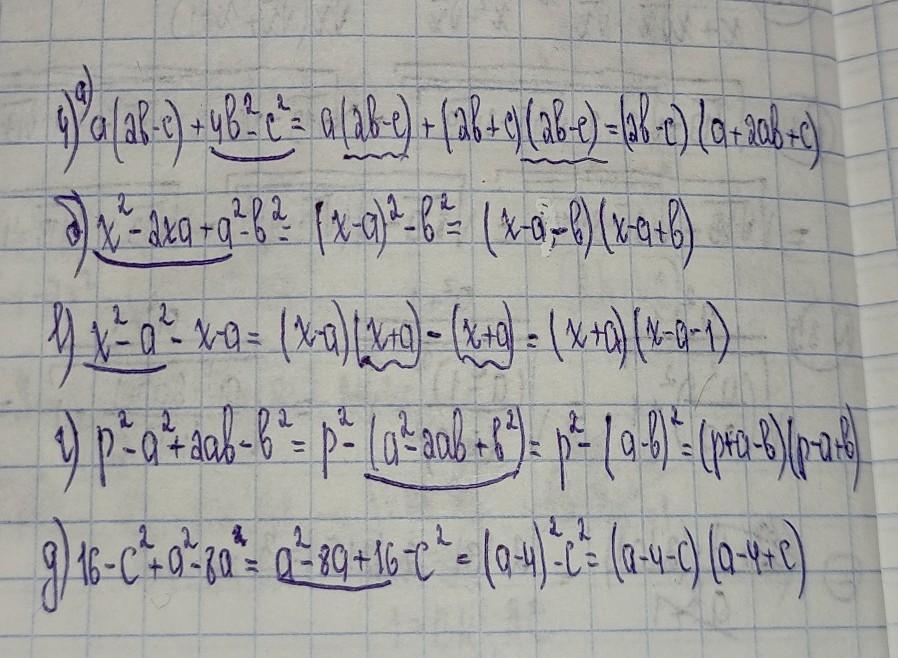 4) а) a(2b-c) + 4b² - c² = a(2b-c) + (2b+c)(2b-c) = (2b-c)(a+2ab+c)
б) x² - 2xa + a² - b² = (x-a)² - b² = (x-a-b)(x-a+b)
в) x² - a² - x - a = (x-a)(x+a) - (x+a) = (x+a)(x-a-1)
г) p² - a² + 2ab - b² = p² - (a² - 2ab + b²) = p² - (a-b)² = (p+a-b)(p-a+b)
д) 16 - c² + a² - 8a² = a² - 8a + 16 - c² = (a-4)² - c² = (a-4-c)(a-4+c)